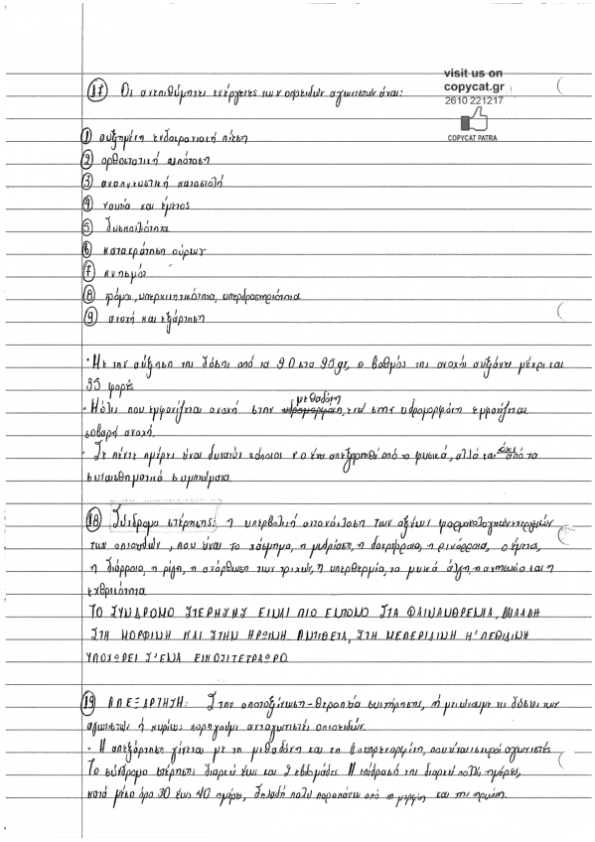 visit us on
copycat.gr
2610 221217
COPYCAT PATRA
17 Οι ανεπιθύμητες ενέργειες των οπιοειδών αγωνιστών είναι:
1 αυξημένη ενδοκρανιακή πίεση
2 ορθοστατική υπόταση
3 αναπνευστική καταστολή
4 ναυτία και έμετος
5 δυσκοιλιότητα
6 κατακράτηση ούρων
7 κνησμός
8 τρόμος, υπερκινητικότητα, υπερδραστηριότητα
9 ανοχή και εξάρτηση
· Με την αύξηση της δόσης από τα 90 στα 95gr, ο βαθμός της ανοχής αυξάνει μέχρι και
35 φορές.
· Μόλις που εμφανίζεται ανοχή στην μεθαδόνη, ενώ στην υδρομορφόνη εμφανίζεται
σοβαρή ανοχή.
· Σε πέντε ημέρες είναι δυνατόν κάποιος να έχει απεξαρτηθεί από τα φυσικά, αλλά και όχι από τα
συναισθηματικά συμπτώματα.
18 Σύνδρομο στέρησης: η υπερβολική αντανάκλαση των οξέων φαρμακολογικών ενεργειών
των οπιοειδών, που είναι το χάσμημα, η μυδρίαση, η δακρύρροια, η ρινόρροια, ο έμετος,
η διάρροια, η ρίγη, η ανόρθωση των τριχών, η υπερθερμία, τα μυικά άλγη, η ανησυχία και η
εχθρικότητα.
ΤΟ ΣΥΝΔΡΟΜΟ ΣΤΕΡΗΣΗΣ ΕΙΝΑΙ ΠΙΟ ΕΝΤΟΝΟ ΣΤΑ ΦΑΙΝΑΝΘΡΕΝΙΑ, ΔΗΛΑΔΗ
ΣΤΗ ΜΟΡΦΙΝΗ ΚΑΙ ΣΤΗΝ ΗΡΩΙΝΗ. ΑΝΤΙΘΕΤΑ, ΣΤΗ ΜΕΠΕΡΙΔΙΝΗ Η' ΠΕΘΙΔΙΝΗ
ΥΠΟΧΩΡΕΙ Σ' ΕΝΑ ΕΙΚΟΣΙΤΕΤΡΑΩΡΟ.
19 ΑΠΕΞΑΡΤΗΣΗ: Στην αποτοξίνωση-θεραπεία συντήρησης, ή μειώνουμε τις δόσεις των
αγωνιστών ή κυρίως χορηγούμε ανταγωνιστές οπιοειδών.
· Η απεξάρτηση γίνεται με τη μεθαδόνη και τη βουπρενορφίνη, που είναι ισχυροί αγωνιστές.
Το σύνδρομο στέρησης διαρκεί έως και 2 εβδομάδες. Η επίδρασή της διαρκεί πολλές ημέρες,
κατά μέσο όρο 30 έως 40 ημέρες, δηλαδή πολύ παραπάνω από τη μορφίνη και την ηρωίνη.